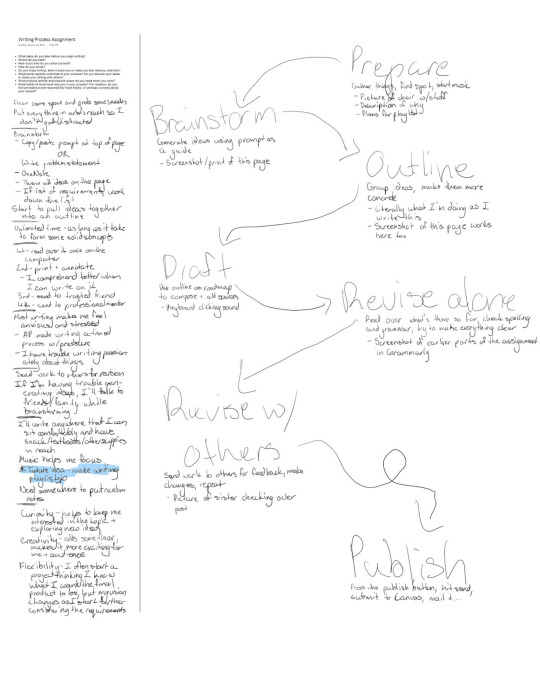 Writing Process Assignment
What steps do you take before you begin writing?
Where do you start?
How much time do you allow yourself?
How do you revise?
Clear some space and grab some snacks
Put everything in arm's reach so I
don't get distracted
Brainstorm
- Copy/paste prompt at top of page
OR
Write problem statement
- OneNote
- Throw all ideas on the page
- If list of requirements, work
down the list
Start to pull ideas together
into an outline
Unlimited time - as long as it takes
to form some solid concepts
1st - read over it once on the
computer
2nd - print + annotate
- I comprehend better when
I can write on it
3rd - send to trusted friend
4th - send to professional/mentor
Most writing makes me feel
anxious and stressed
- AP made writing a timed
process w/ pressure
- I have trouble writing passion-
ately about things
Send work to others for revision
If I'm having trouble gen-
erating ideas, I'll talk to
friends/family while
brainstorming
I'll write anywhere that I can
sit comfortably and have
snacks/textbooks/other supplies
in reach
Music helps me focus
* Future idea - make writing
playlists
Need somewhere to put random
notes
Curiosity - helps to keep me
interested in the topic +
exploring new ideas
Creativity - adds some flavor,
makes it more exciting for
me + audience
Flexibility - I often start a
project thinking I know
what I want the final
product to be, but my vision
changes as I start further
considering the requirements
Prepare
Gather things, find spot, start music
- Picture of chair w/ stuff
- Description of why
- Plans for playlist
Brainstorm
Generate ideas using prompt as
a guide
- Screenshot/print of this page
Outline
Group ideas, make them more
concrete
- Literally what I'm doing as I
write this
- Screenshot of this page works
here too
Draft
Use outline as roadmap
to compose + add sources
- Keyboard clicking sound
Revise alone
Read over what's there so far, check spelling
and grammar, try to make everything clear
- Screenshot of earlier parts of the assignment
in Grammarly
Revise w/
others
Send work to others for feedback, make
changes, repeat
- Picture of sister checking over
post
Publish
Press the publish button, hit send,
submit to Canvas, mail it...